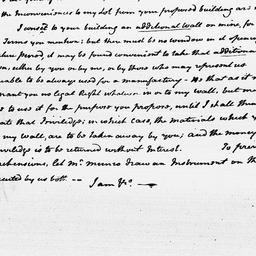 the Inconveniences to my lot from your proposed building are
I consent to your building an additional wall on mine, for
Terms you mention; but there must be no window on opening
future Period, it may be found convenient to take that additional
down, either by you or by me, or by those who may represent us
able to be always used for a manufactory. - So that as it
grant you no legal Right whatever in or to my wall, but me
to use it for the purpose you propose, until I shall thi
ate that Priviledge; in which case, the materials which y
my wall, are to be taken away by you; and the money
iviledge is to be returned without Interest. To prev
rehensions, let Mr. Munro draw an Instrument on th
ecuted by us both --
I am &c.